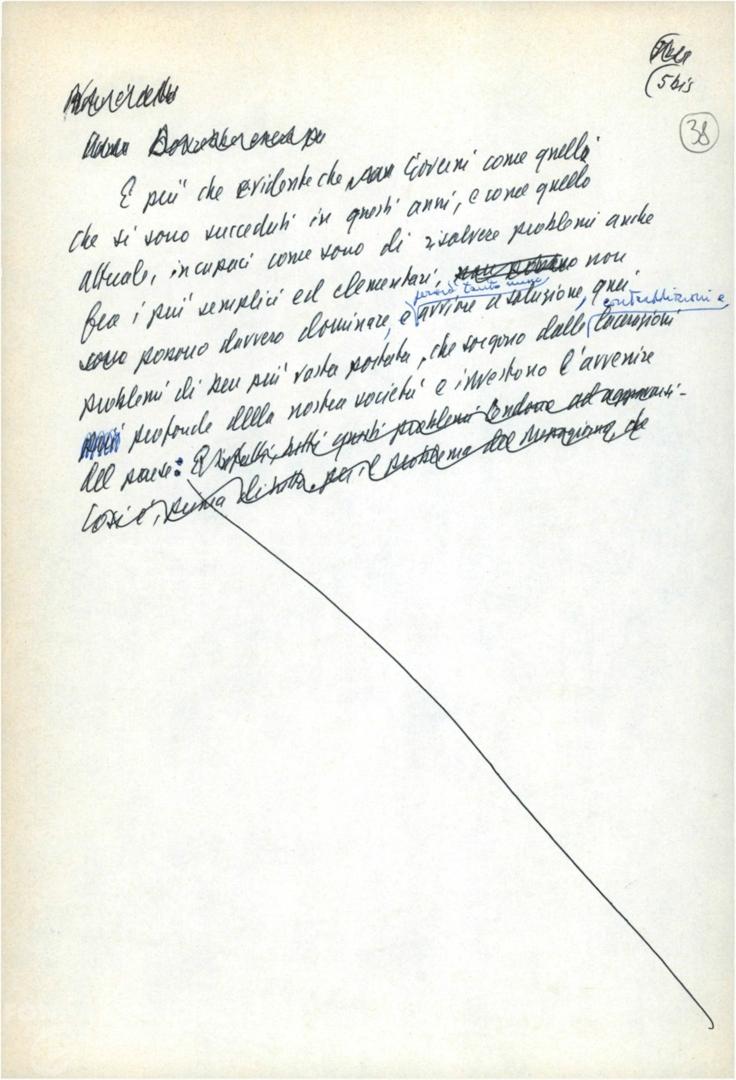 (5 bis
38
E più che evidente che Governi come quelli
che si sono succeduti in questi anni, e come quello
attuale, incapaci come sono di risolvere problemi anche
fra i più semplici ed elementari, non
possono davvero dominare, e avviare a soluzione, quei
contraddizioni e
problemi di ben più vasta portata, che sorgono dalle lacerazioni
profonde della nostra società e investono l'avvenire
del paese: E infatti, tutti questi problemi tendono ad
Così è, prima di tutto, per il problema del Mezzogiorno, che